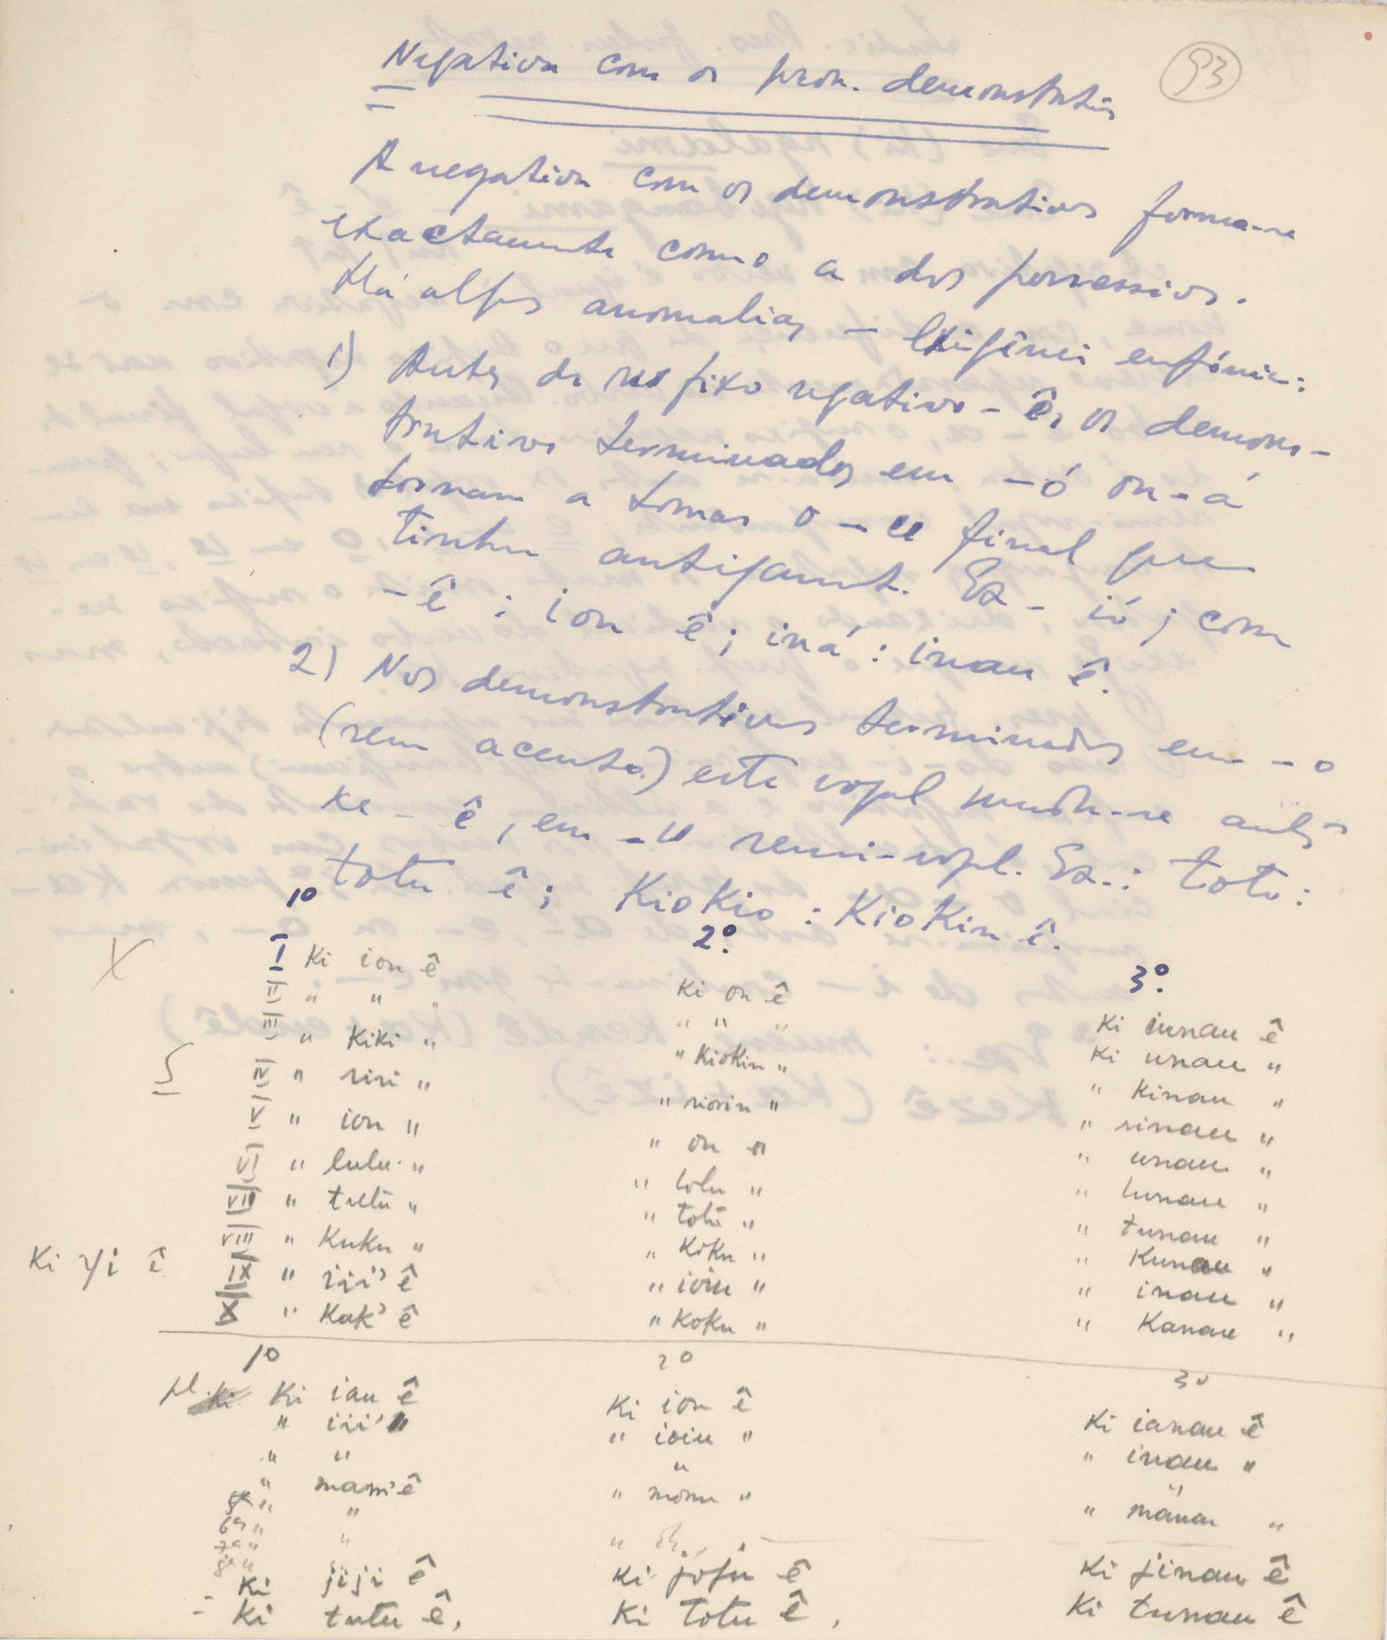 93
Negativa com os pron. demonstrativos
A negativa com os demonstrativos forma-se
exactamente como a dos possessivos.
Há algs anomalias – Exigênci eufónic:
1) Antes do sufixo negativo - ê, os demons-
trativos terminados em -ó ou -á
tornam a tomar o -u final que
tinham antigamente. Ex - ió ; com
- ê : iou ê ; iná : inau ê.
2) Nos demonstrativos terminados em -o
(sem acento) esta vogal muda-se antes
- ê, em -u semi-vogal. Ex.: toto :
totu ê ; Kiokio : Kiokiu ê.
1º 2º. 3º.
I Ki iou ê Ki ou ê Ki iunau ê
II " " " " " " Ki unau "
III " Kiki " " Kiokiu " " Kinau "
IV " siri " " siosiu " " sinau "
V " iou " " ou " " unau "
VI " lulu " " lolu " " lunau "
VII " tutu " " totu " " tunau "
VIII " Kuku " " Koku " " Kunau "
Ki yi ê IX " iii' ê " ioiu " " inau "
X " Kak' ê " Koku " " Kanau "
1º 2º 3º
pl. Ki iau ê Ki iou ê Ki ianau ê
" iii' " " ioiu " " inau "
" " " "
" mam' ê " momu " " manau "
5ª " "
6ª " "
7ª "
8ª "
Ki jiji ê Ki joju ê Ki jinau ê
Ki tutu ê, Ki totu ê, Ki tunau ê